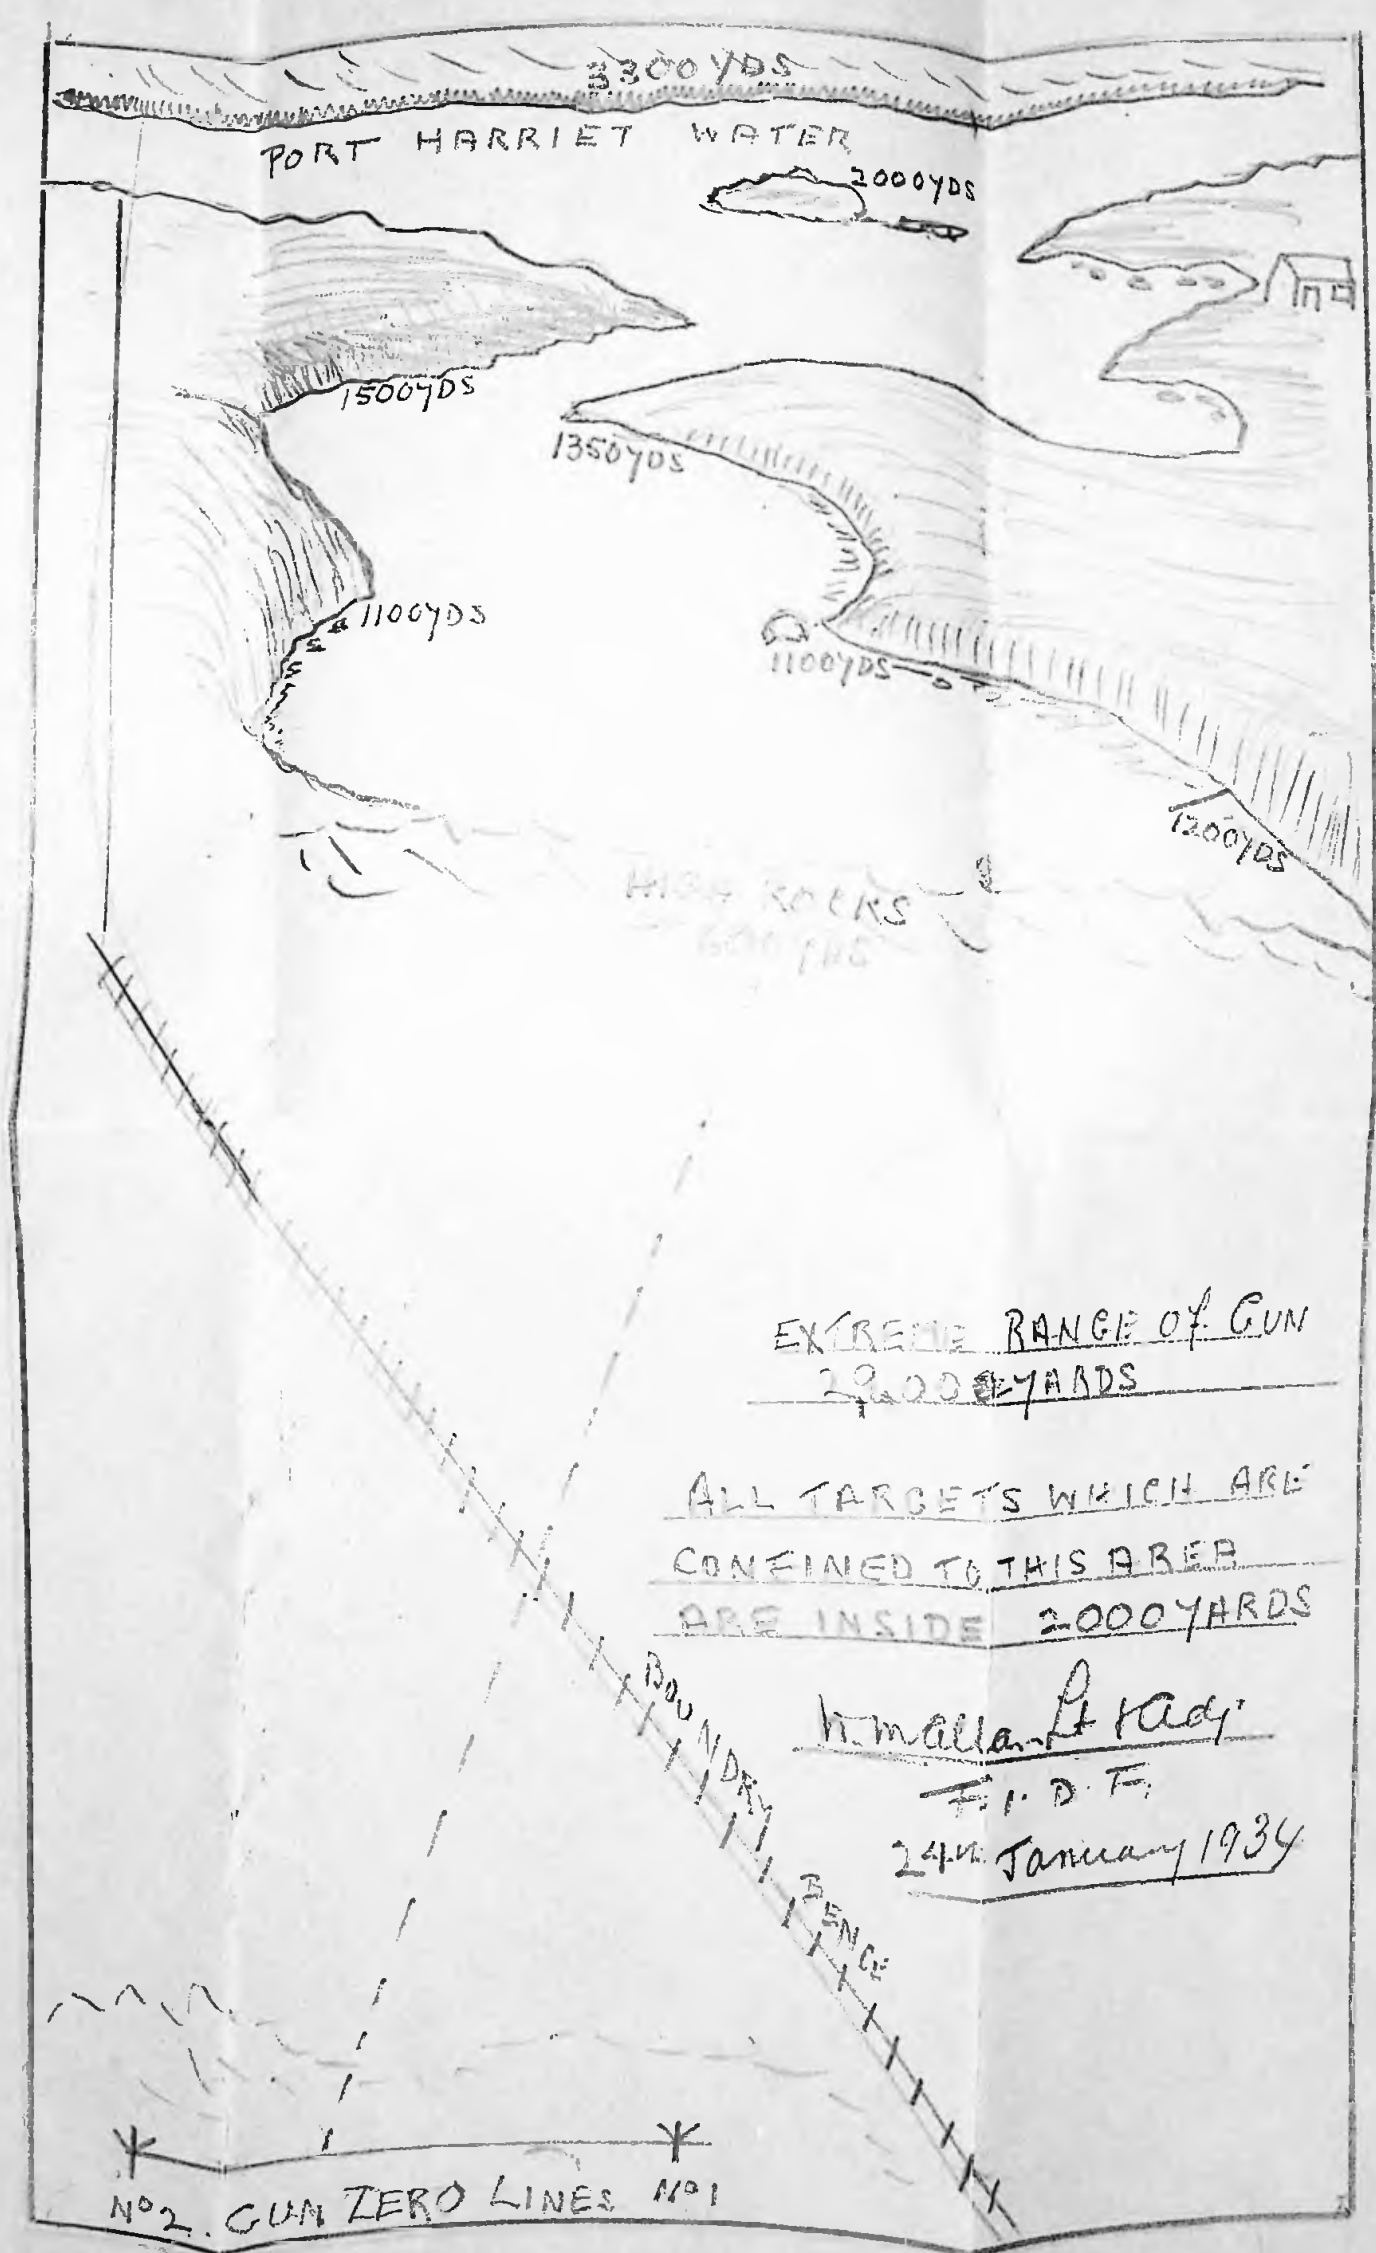 3300 YDS
PORT HARRIET WATER
2000YDS
1500YDS
1350YDS
1100YDS
1100YDS
1200YDS
HIGH ROCKS
EXTREME RANGE OF GUN
YARDS
ALL TARGETS WHICH ARE
CONFINED TO THIS AREA
ARE INSIDE 2000 YARDS
Lt & Adj.
F.I.D.F.
24th January 1934
BOUNDRY BENCE
No 2. GUN ZERO LINES No 1